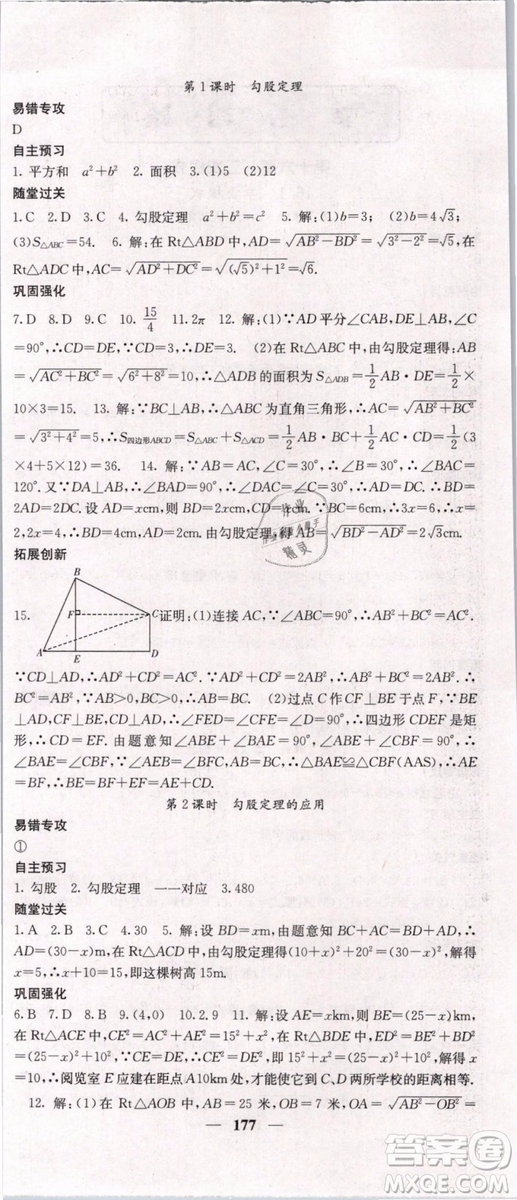 第1课时 勾股定理
易错专攻
D
自主预习
1. 平方和 a²+b² 2. 面积 3.(1)5 (2)12
随堂过关
1. C 2. D 3. D 4. 勾股定理 a²+b²=c² 5. 解:(1)b=3; (2)b=4√3;
(3)S△ABC=54. 6. 解:在 Rt△ABD 中,AD=√(AB²−BD²)=√(3²−2²)=√5,
在 Rt△ADC 中,AC=√(AD²+DC²)=√((√5)²+1²)=√6.
巩固强化
7. D 8. D 9. C 10. 15/4 11. 2π 12. 解:(1)∵AD 平分∠CAB,DE⊥AB,∠C
=90°,∴CD=DE,∵CD=3,∴DE=3. (2)在 Rt△ABC 中,由勾股定理得 AB
=√(AC²+BC²)=√(6²+8²)=10,∴△ADB 的面积为 S△ADB=1/2 AB·DE=1/2×
10×3=15. 13. 解:∵AB⊥BC,∴△ABC 为直角三角形,∴AC=√(AB²+BC²)
=√(3²+4²)=5,∴S四边形ABCD=S△ABC+S△ACD=1/2 AB·BC+1/2 AC·CD=1/2(3
×4+5×12)=36. 14. 解:∵AB=AC,∠C=30°,∴∠B=∠C=30°,∴∠BAC=
120°,∵∠BAD=90°,∴∠DAC=30°,∴AD=DC,设 AD=xcm,∵∠B=30°,
∠BAD=90°,∴BD=2AD=2xcm,∴BC=3xcm,∵BC=6cm,∴3x=6,x=
2,2x=4,∴BD=4cm,AD=2cm,由勾股定理,得 AB=√(BD²−AD²)=2√3cm.
拓展创新
15.
B
F
C
A
E
D
证明:(1)连接 AC,∵∠ABC=90°,∴AB²+BC²=AC².
∵CD⊥AD,∴AD²+CD²=AC².∵AD²+CD²=2AB²,∴AB²+BC²=2AB²,∴BC²
=AB²,∵AB>0,BC>0,∴AB=BC. (2)过点 C 作 CF⊥BE 于点 F,∵BE⊥AD,
CF⊥BE,CD⊥AD,∴∠FED=∠CFE=∠D=90°,∴四边形 CDEF 是矩形.
∴CD=EF. 由题意知∠ABE+∠BAE=90°,∠ABE+∠CBF=90°,∴
∠BAE=∠CBF,∴在△BAE 与△CBF 中,∴△BAE≌△CBF(AAS),∴AE=
BF,∴BE=BF+EF=AE+CD.
第2课时 勾股定理的应用
易错专攻
①
自主预习
1. 勾股 2. 勾股定理 一一对应 3. 480
随堂过关
1. A 2. B 3. C 4. 30 5. 解:设 BD=xm,由题意知 BC+AC=BD+AD,∴
AD=(30−x)m,在 Rt△ACD 中,由勾股定理得(10+x)²+20²=(30−x)²,解得
x=5,∴x+10=15,即这棵树高 15m.
巩固强化
6. B 7. D 8. B 9. (4,0) 10. 2.9 11. 解:设 AE=xkm,则 BE=(25−x)km,
在 Rt△ACE 中,CE²=AC²+AE²=15²+x²,在 Rt△BDE 中,ED²=BE²+BD²
=(25−x)²+10²,由题意知 CE=ED,∴CE²=ED²,∴15²+x²=(25−x)²+10²,解得
x=10,∴阅览室 E 应建在距点 A10km 处,才能使它到 C、D 两所学校的距离相等.
12. 解:(1)在 Rt△AOB 中,AB=25 米,OB=7 米,OA=√(AB²−OB²)=
177
作业
精灵
答案圈
MXQE.COM